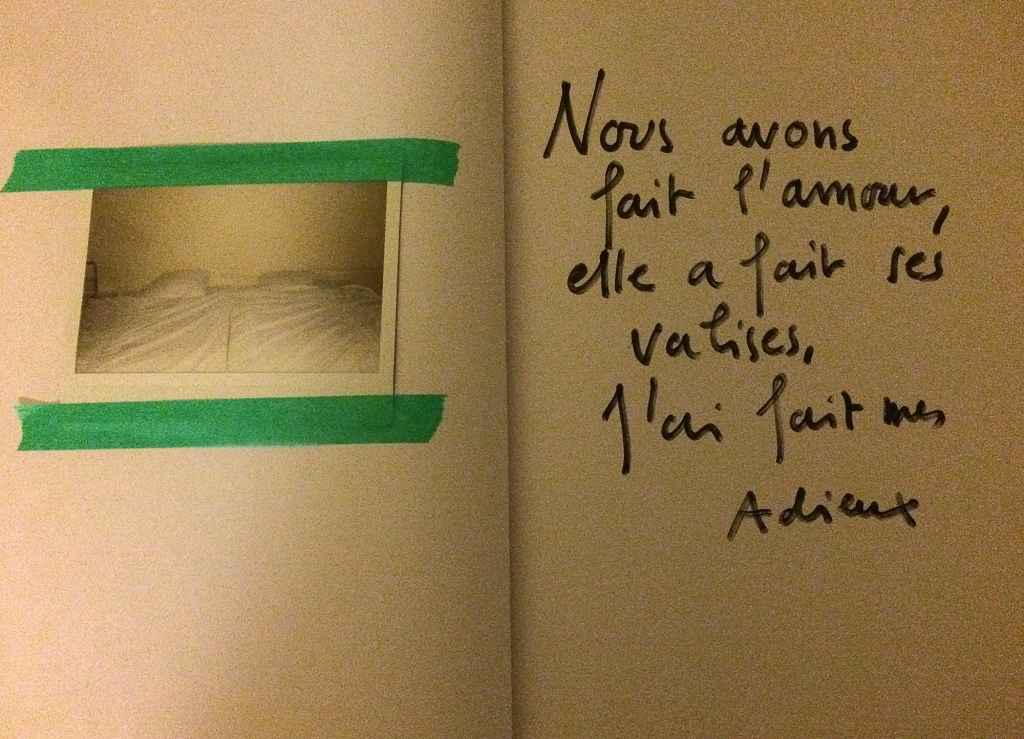 Nous avons
fait l'amour,
elle a fait ses
valises,
J'ai fait mes
Adieux